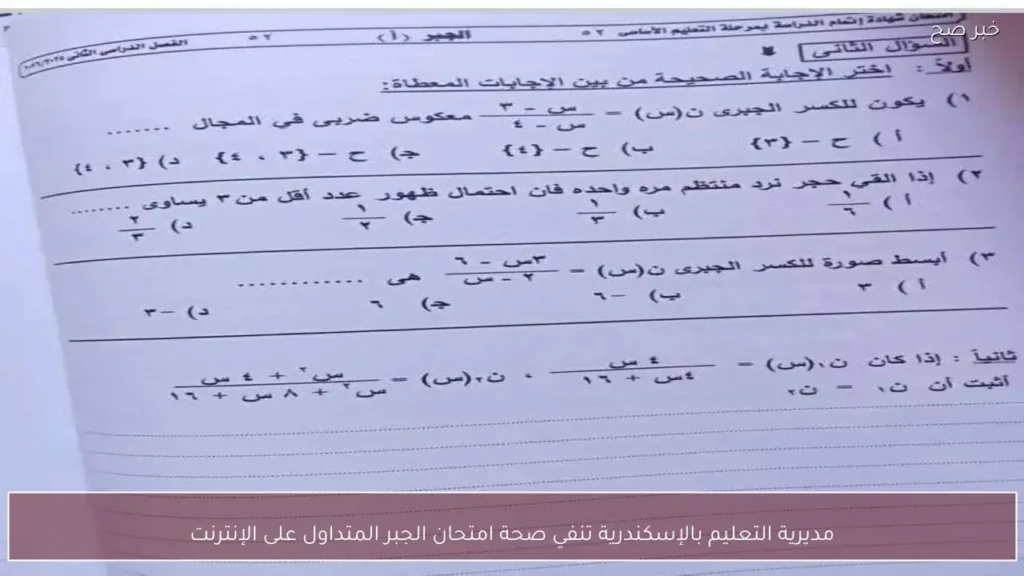 خبر صح
امتحان شهادة إتمام الدراسة بمرحلة التعليم الأساسى ٥٢ الجبر (أ) ٥٢ الفصل الدراسى الثانى ٢٠٢٦/٢٠٢٥
السؤال الثانى
أولاً : اختر الإجابة الصحيحة من بين الإجابات المعطاة:
١) يكون للكسر الجبرى ن(س) = (س - ٣)/(س - ٤) معكوس ضربى في المجال .......
أ ) ح - {٣} ب) ح - {٤} ج) ح - {٣ ، ٤} د) {٣ ، ٤}
٢) إذا القي حجر نرد منتظم مره واحده فان احتمال ظهور عدد أقل من ٣ يساوى ........
أ ) ١/٦ ب) ١/٣ ج) ١/٢ د) ٢/٣
٣) أبسط صورة للكسر الجبرى ن(س) = (٣س - ٦)/(٢ - س) هى ............
أ ) ٣ ب) -٦ ج) ٦ د) -٣
ثانياً : إذا كان ن١(س) = ٤ س/(٤س + ١٦) ، ن٢(س) = (س٢ + ٤ س)/(س٢ + ٨ س + ١٦)
أثبت أن ن١ = ن٢
مديرية التعليم بالإسكندرية تنفي صحة امتحان الجبر المتداول على الإنترنت